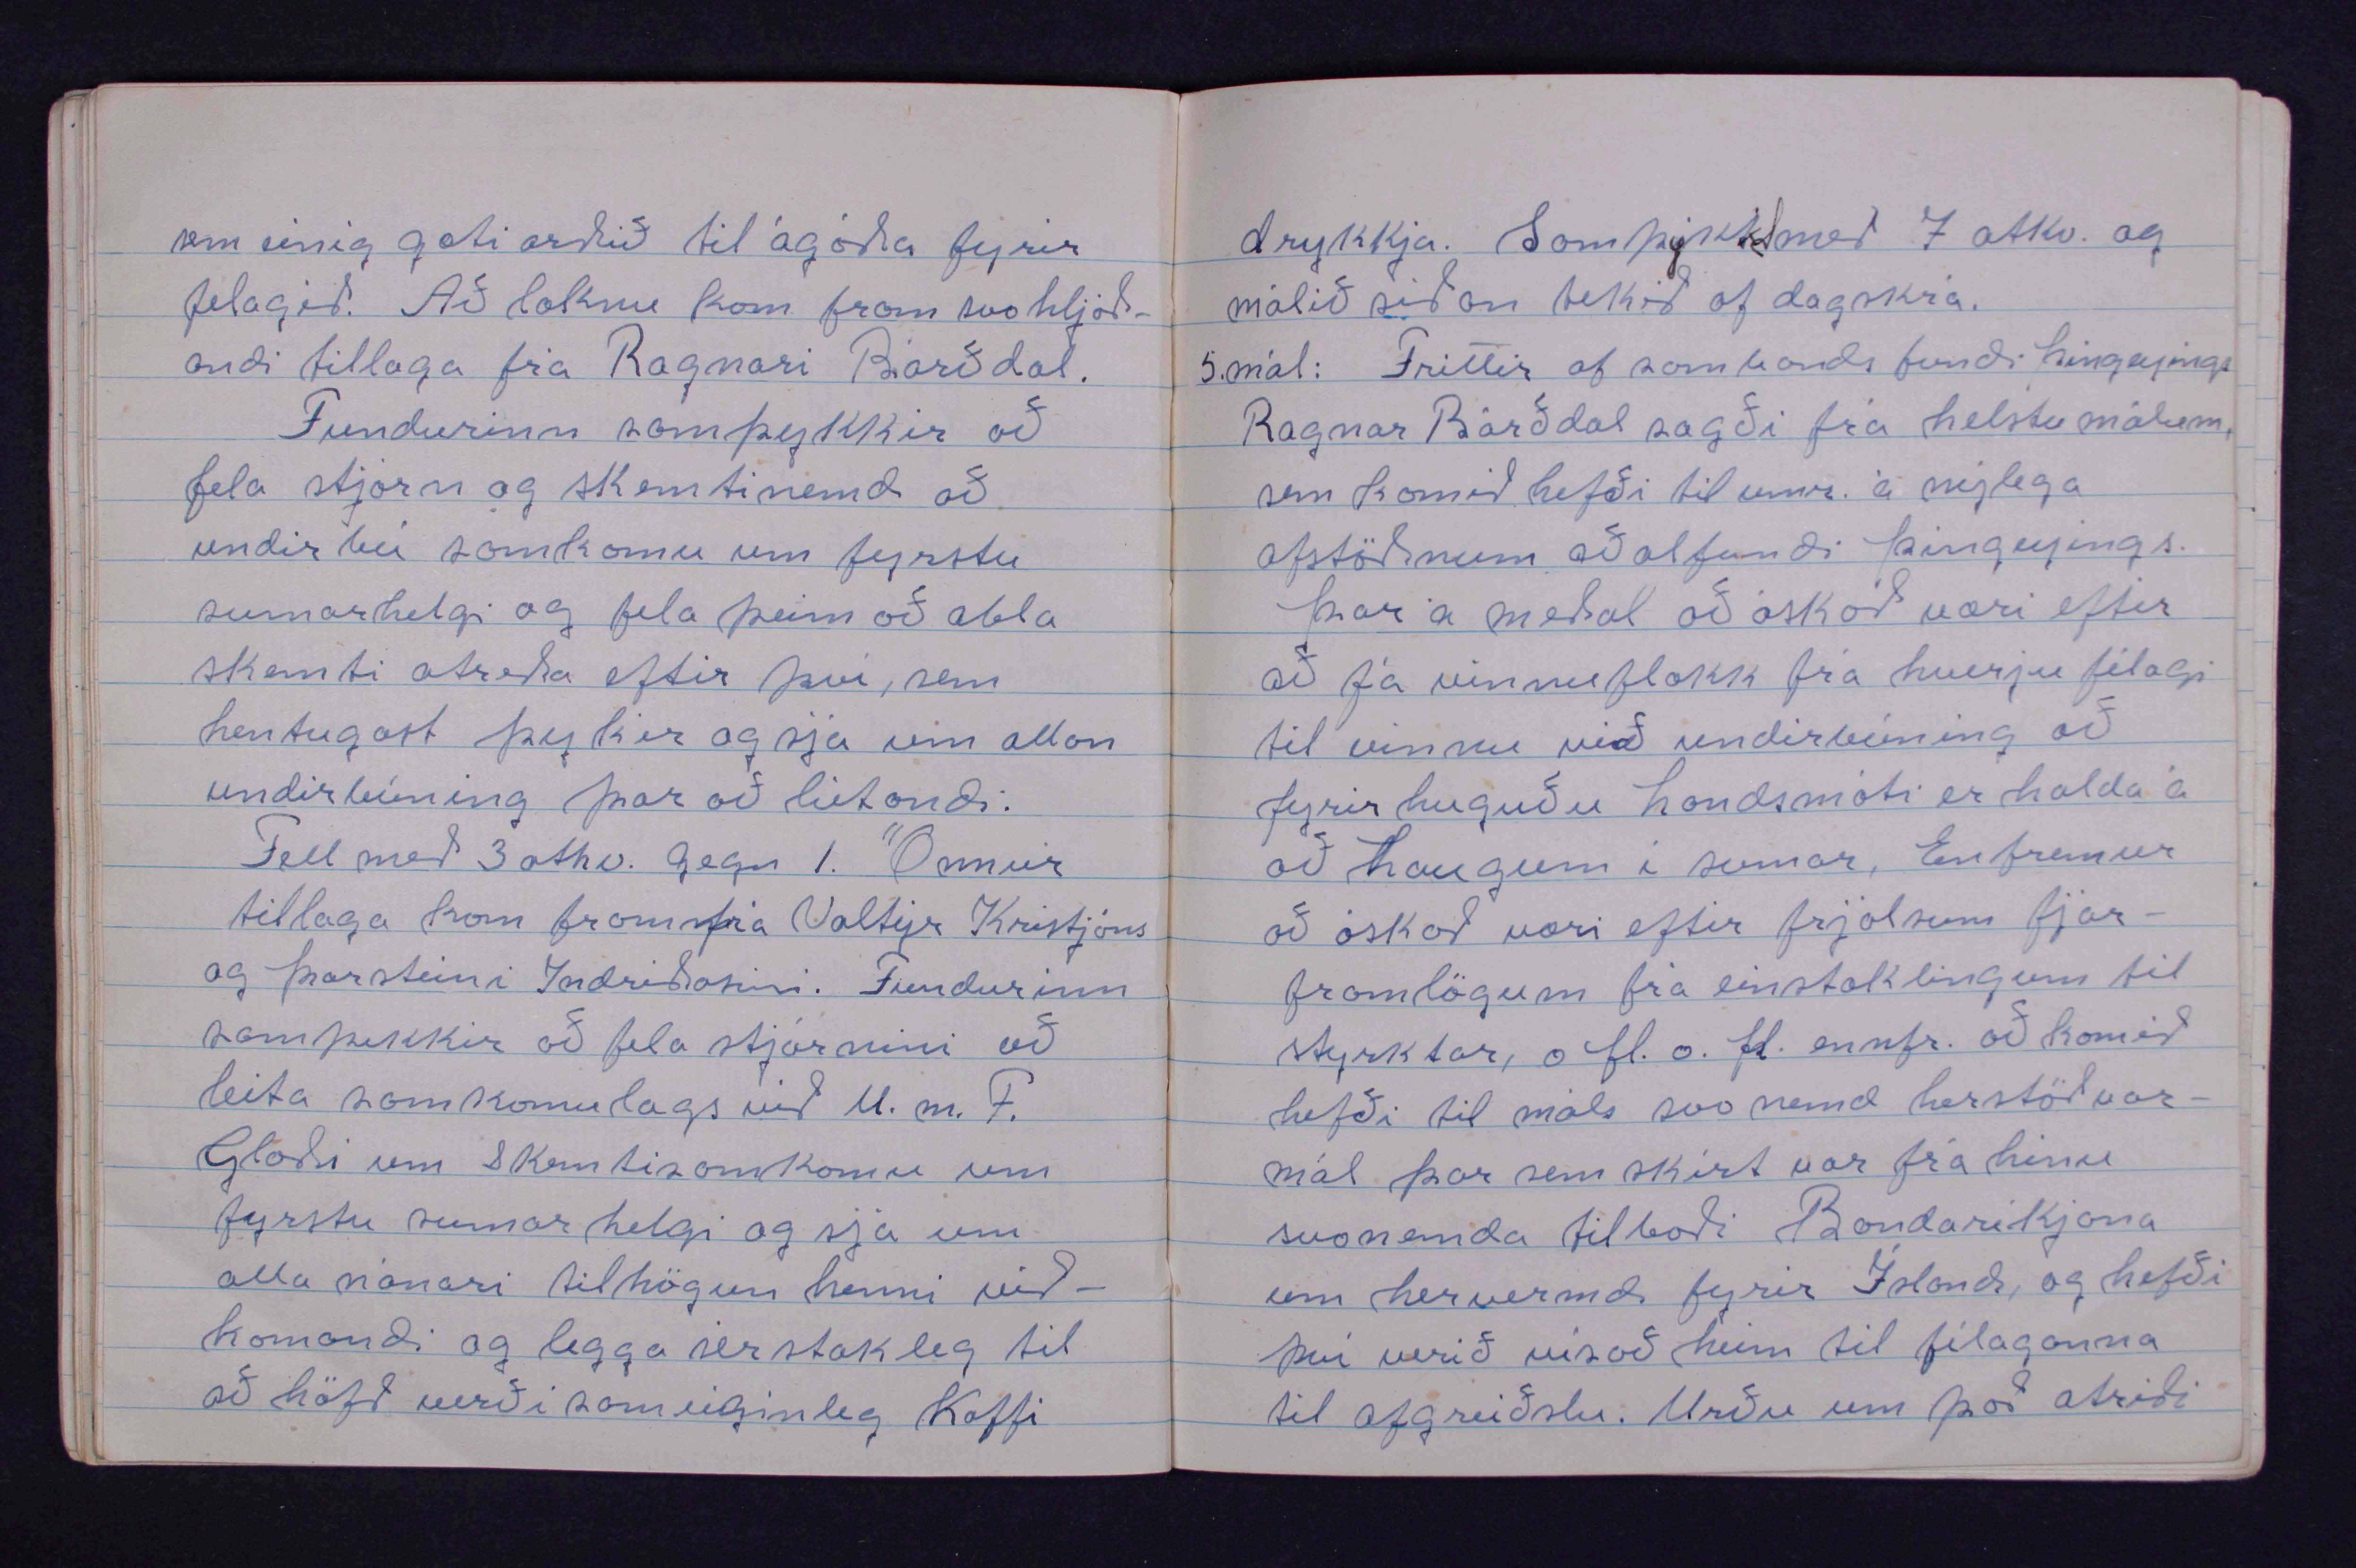 sem einig gæti orðið til ágóða fyrir
felagið. Að loknu kom fram svo hljóð-
andi tillaga frá Ragnari Bárðdal.
Fundurinn samþykkir að
fela stjórn og skemtinemd að
undirbú samkomu um fyrstu
sumarhelgi og fela þeim að abla
skemti atreða eftir því, sem
hentugast þykir og sjá um allan
undirbúning þar að lútandi.
Fell með 3 athv. gegn 1. Önnur
tillaga kom fram frá Valtýr Kristjáns
og Þorsteini Indriðasini. Fundurinn
samþekkir að fela stjórnini að
leita samkomulags við U. m. F.
Glaði um skemtisamkomu um
fyrstu sumarhelgi og sjá um
alla nánari tilhögun henni við-
komandi og legga sérstakleg til
að höfð verði sameiginleg Kaffi
drykkja. Samþykkt með 7 atkv. og
málið síðan tekið af dagskrá.
5. mál: Fréttir af sambands fundi Þingeyings
Ragnar Bárðdal sagði frá helstu málum,
sem komið hefði til umr. á nýlega
afstöðnum aðalfundi Þingeyings.
Þar á meðal að óskað væri eftir
að fá vinnuflokk frá hverju félagi
til vinnu við undirbúning að
fyrirhuguðu handsmóti er halda á
að Laugum í sumar, Enfremur
að óskað væri eftir frjálsum fjár-
framlögum frá einstaklingum til
styrktar, o fl. o. fl. ennfr. að komið
hefði til máls svo nemd herstöðvar-
mál þar sem skírt var frá hinu
svonemda tilboði Bandaríkjana
um hervernd fyrir Ísland, og hefði
því verið vísað heim til félaganna
til afgreiðslu. Urðu um það atriði